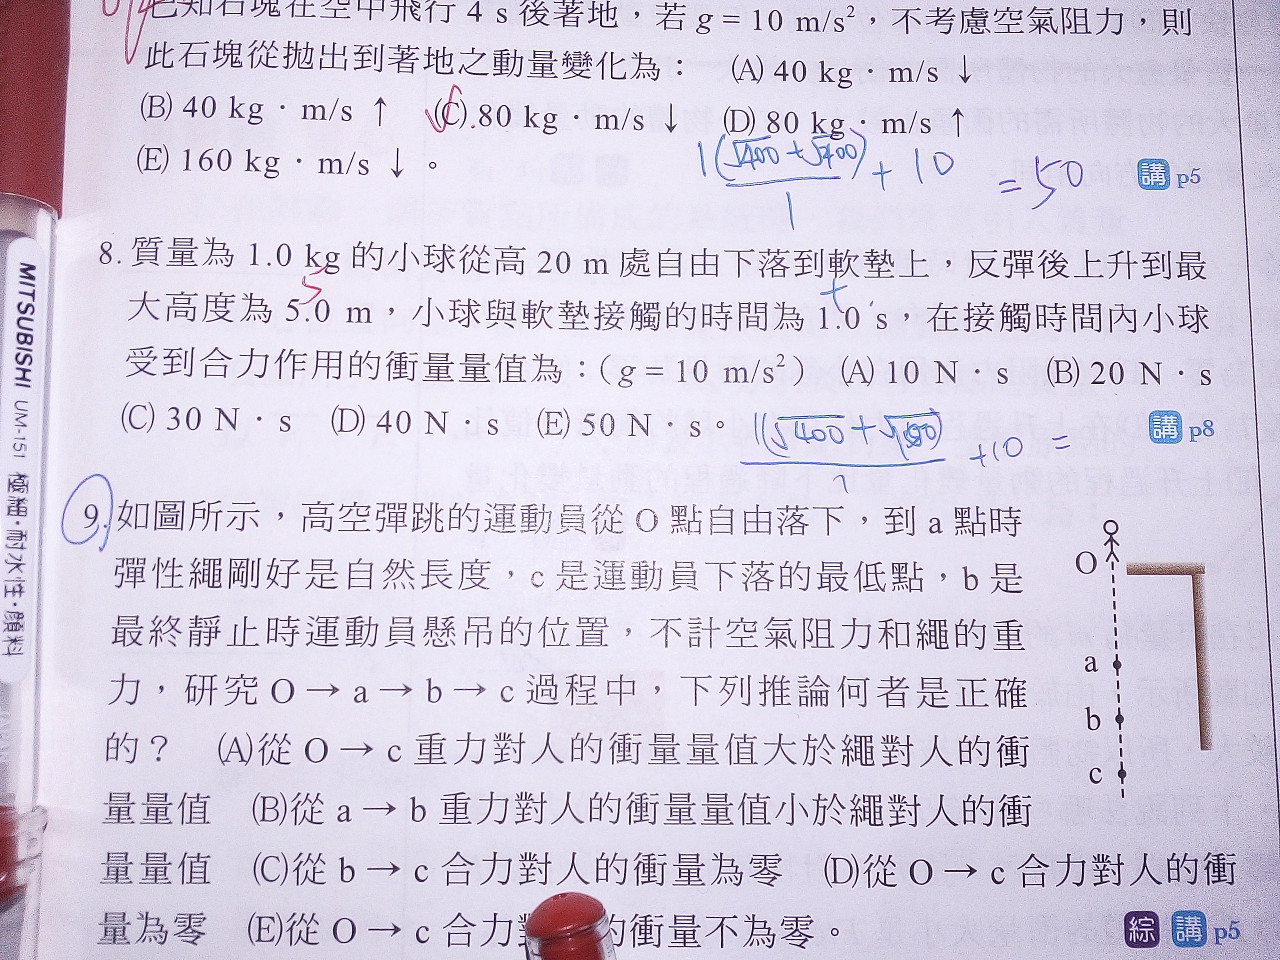 已知石塊在空中飛行 4 s 後著地，若 g = 10 m/s²，不考慮空氣阻力，則
此石塊從拋出到著地之動量變化為： (A) 40 kg · m/s ↓
(B) 40 kg · m/s ↑ (C) 80 kg · m/s ↓ (D) 80 kg · m/s ↑
(E) 160 kg · m/s ↓ 。
1(√400 + √400)/1 + 10 = 50
講 p5
8. 質量為 1.0 kg 的小球從高 20 m 處自由下落到軟墊上，反彈後上升到最
大高度為 5.0 m，小球與軟墊接觸的時間為 1.0 s，在接觸時間內小球
受到合力作用的衝量量值為：（g = 10 m/s²） (A) 10 N · s (B) 20 N · s
(C) 30 N · s (D) 40 N · s (E) 50 N · s。
講 p8
+10 =
9. 如圖所示，高空彈跳的運動員從 O 點自由落下，到 a 點時
彈性繩剛好是自然長度，c 是運動員下落的最低點，b 是
最終靜止時運動員懸吊的位置，不計空氣阻力和繩的重
力，研究 O → a → b → c 過程中，下列推論何者是正確
的？ (A)從 O → c 重力對人的衝量量值大於繩對人的衝
量量值 (B)從 a → b 重力對人的衝量量值小於繩對人的衝
量量值 (C)從 b → c 合力對人的衝量為零 (D)從 O → c 合力對人的衝
量為零 (E)從 O → c 合力對 的衝量不為零。
綜 講 p5
O
a
b
c
MITSUBISHI UM-151 極細·耐水性·顔料